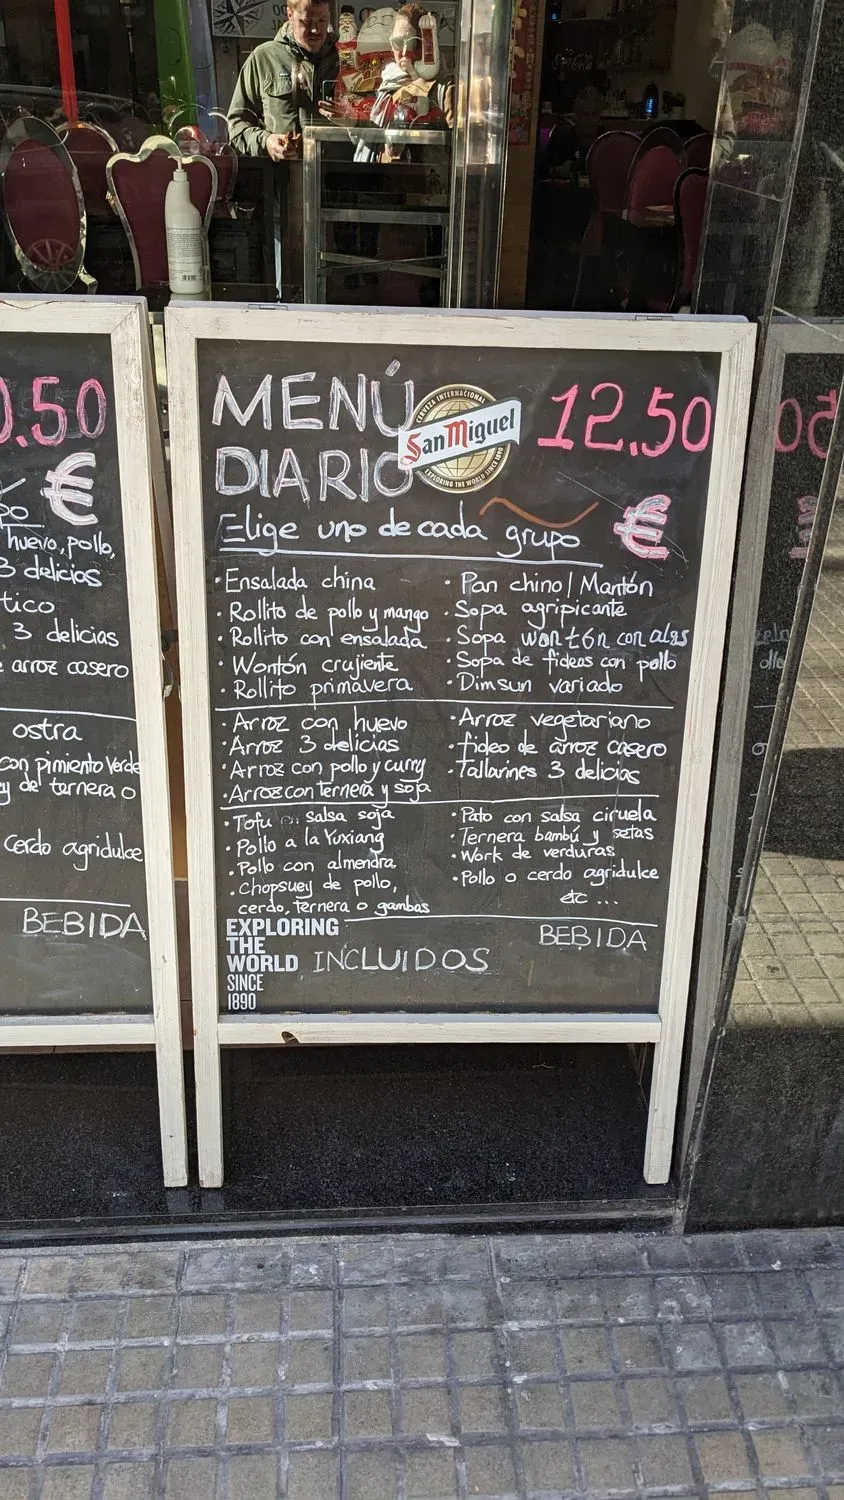 0.50
€
huevo, pollo,
3 delicios
tico
3 delicias
arroz casero
ostra
con pimiento Verde
y de ternera o
cerdo agridulce
BEBIDA
MENÚ
DIARIO
CERVEZA INTERNACIONAL
San Miguel
EXPLORING THE WORLD SINCE 1890
12.50
€
Elige uno de cada grupo
· Ensalada china
· Rollito de pollo y mango
· Rollito con ensalada
· Wontón crujiente
· Rollito primavera
· Pan chino / Mantón
· Sopa agripicante
· Sopa wontón con algs
· Sopa de fideos con pollo
· Dimsun variado
· Arroz con huevo
· Arroz 3 delicias
· Arroz con pollo y curry
· Arroz con ternera y soja
· Arroz vegetariano
· fideo de arroz casero
· Tallarines 3 delicias
· Tofu salsa soja
· Pollo a la Yuxiang
· Pollo con almendra
· Chopsuey de pollo,
cerdo, ternera o gambas
· Pato con salsa ciruela
· Ternera bambú y setas
· Work de verduras
· Pollo o cerdo agridulce
etc ...
EXPLORING
THE
WORLD
SINCE
1890
INCLUIDOS
BEBIDA